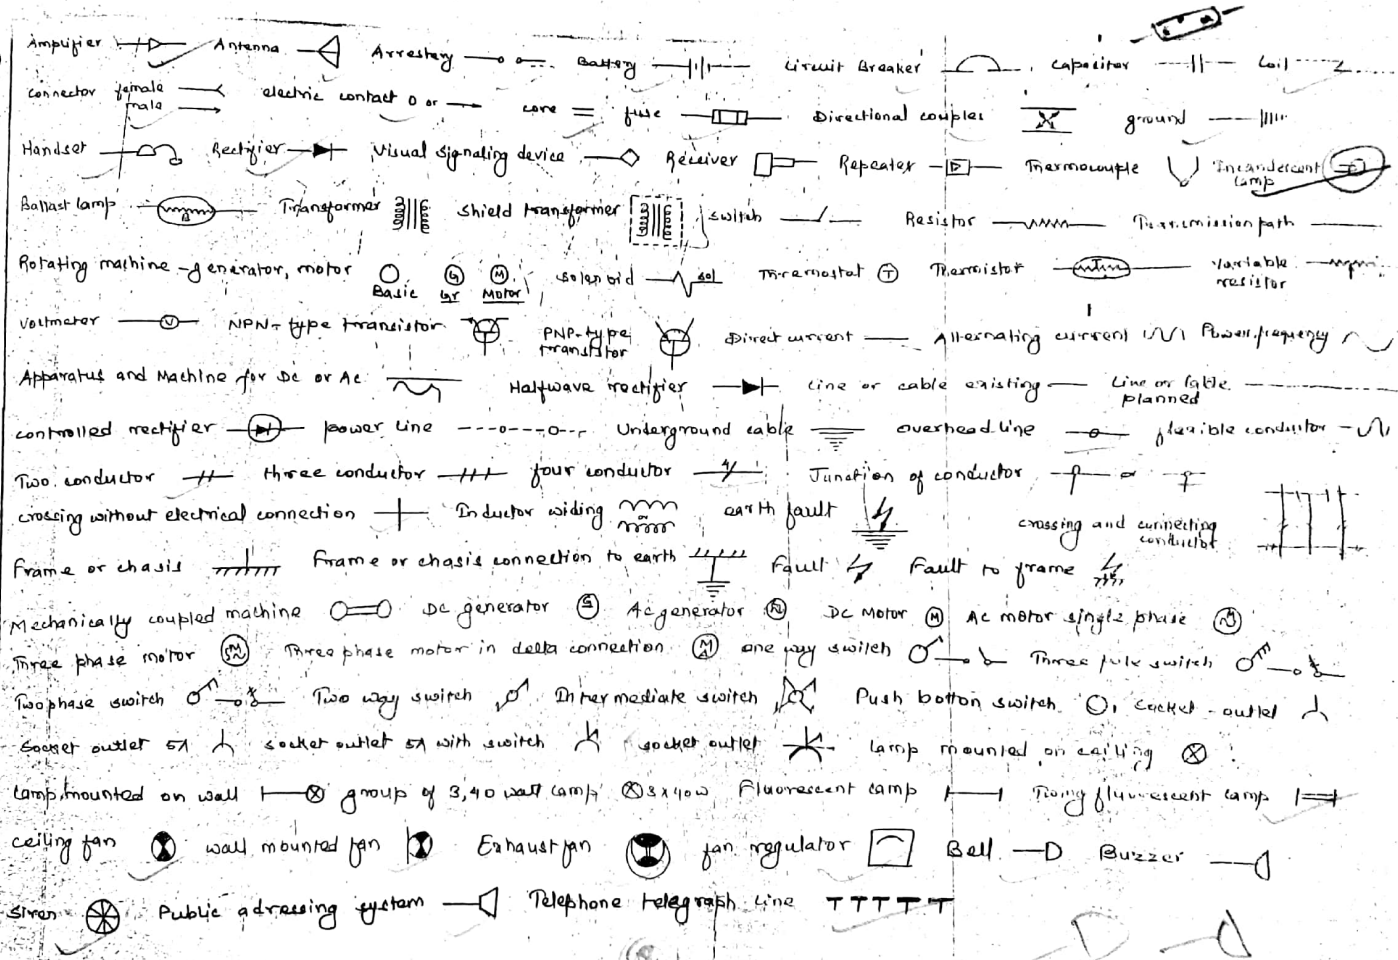 Amplifier Antenna Arrestery Battery Circuit Breaker Capacitor Coil
connector female electric contact O or core fuse Directional coupler ground
male
Handset Rectifier Visual signaling device Receiver Repeater Thermocouple Incandescent
Lamp
Ballast lamp Transformer shield transformer switch Resistor Transmission path
Rotating machine - generator, motor G M solenoid sol Thremostat T Thermistor variable
Basic Gr Motor resistor
voltmeter V NPN- type transistor PNP-type Direct current Alternating current Power frequency
transistor
Apparatus and Machine for Dc or Ac Halfwave rectifier Line or cable existing Line or Cable
planned
controlled rectifier power line Underground cable overhead line flexible conductor
Two conductor three conductor four conductor 4 Junction of conductor or
crossing without electrical connection Inductor widing or earth fault crossing and connecting
conductor
Frame or chasis Frame or chasis connection to earth Fault Fault to frame
Mechanically coupled machine DC generator G Ac generator DC Motor M Ac motor single phase M
Three phase motor M Three phase motor in delta connection M one way switch Three pole switch
Two phase switch Two way switch Intermediate switch Push botton switch socket - outlet
Socket outlet 5A socket outlet 5A with switch socket outlet Lamp mounted on ceiling
Lamp mounted on wall group of 3,40 watt lamp 3x40W Fluorescent lamp fluorescent lamp
ceiling fan wall mounted fan Exhaust fan fan regulator Bell Buzzer
Siren Public adressing system Telephone telegraph line